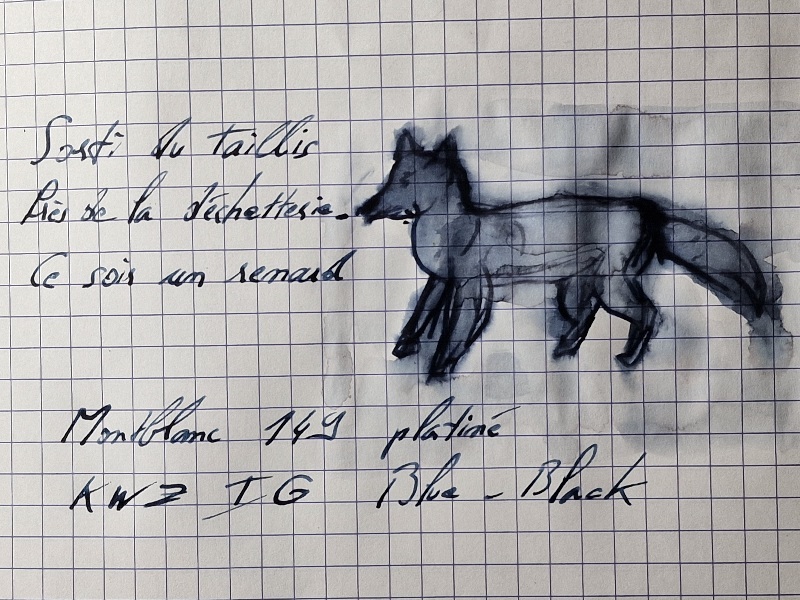 Sorti du taillis
Près de la déchetterie.
Ce soir un renard
Montblanc 149 platiné
KWZ IG Blue-Black